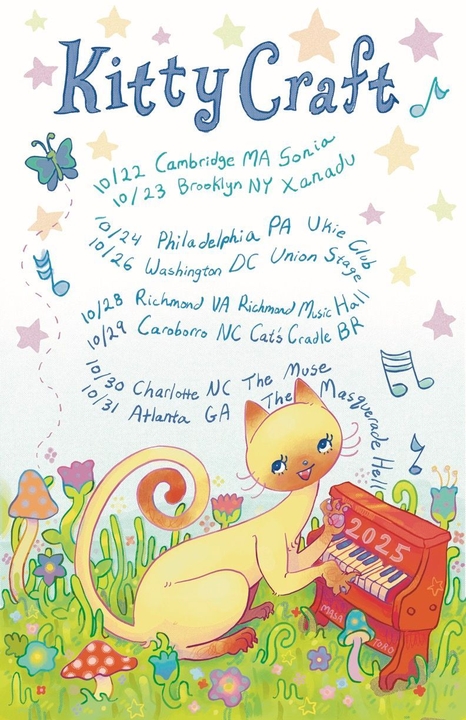 Kitty Craft
10/22 Cambridge MA Sonia
10/23 Brooklyn NY Xanadu
10/24 Philadelphia PA Ukie Club
10/26 Washington DC Union Stage
10/28 Richmond VA Richmond Music Hall
10/29 Caroborro NC Cat's Cradle BR
10/30 Charlotte NC The Muse
10/31 Atlanta GA The Masquerade Hell
2025
MASA
TORO